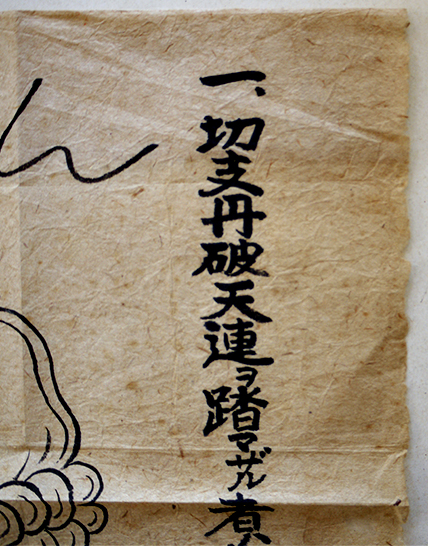 一、切支丹破天連ヲ踏マザル者
ん